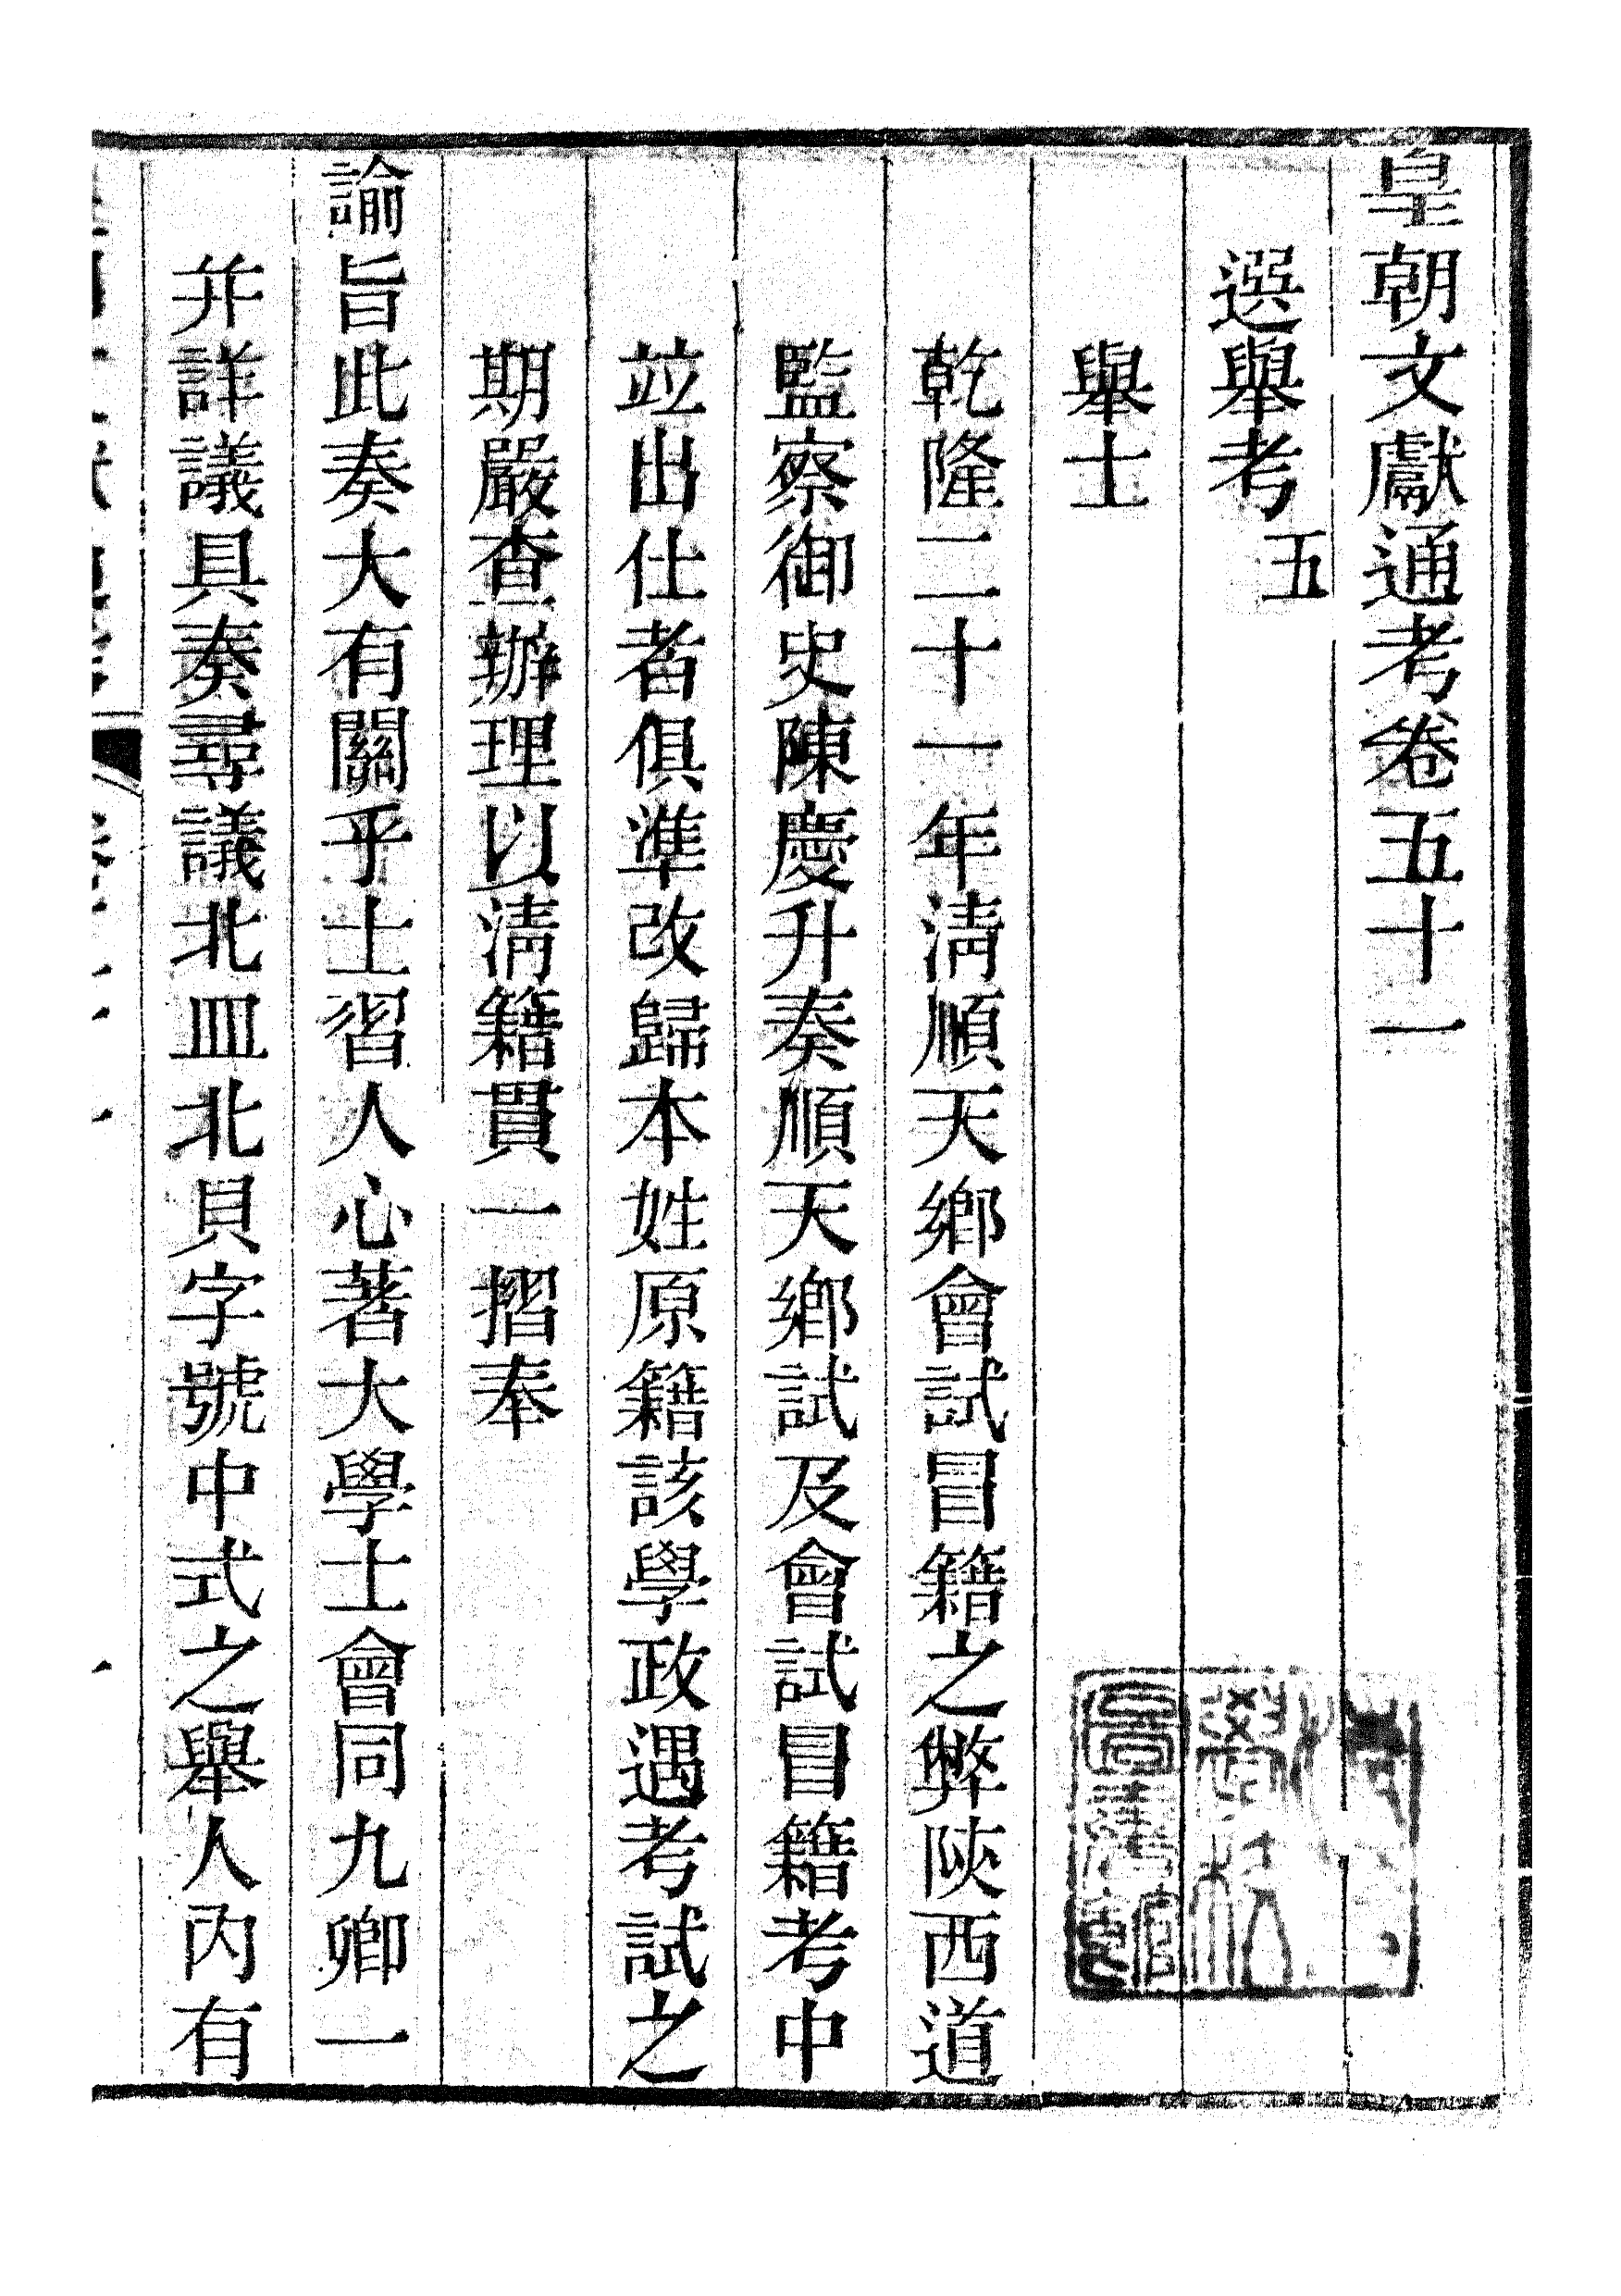 皇朝文獻通考卷五十一
選舉考五
舉士
乾隆二十一年淸順天鄉會試冒籍之弊陝西道
監察御史陳慶升奏順天鄉試及會試冒籍考中
竝出仕者俱準改歸本姓原籍該學政遇考試之
期嚴查辦理以淸籍貫一摺奉
諭旨此奏大有關乎士習人心著大學士會同九卿一
并詳議具奏尋議北皿北貝字號中式之舉人內有